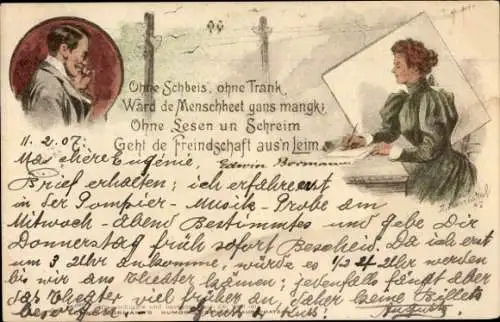 Ohne Schbeis', ohne Trank,
Wärd de Menschheet gans mangk;
Ohne Lesen un Schreim
Geht de Freindschaft aus'n Leim.
Edwin Bormann
11.2.07.
Ma chère Eugénie,
Brief erhalten; ich erfahre erst
in der Pompier-Musik-Probe am
Mittwoch-Abend Bestimmtes und gebe Dir
Donnerstag früh sofort Bescheid. Da ich erst
um 3 Uhr ankomme, würde es 1/2 4 Uhr werden
bis wir ans Theater kämen; jedenfalls fängt aber
das Theater viel früher an, daher keine Billets
besorgen. Gruss & Kuss: Auguste